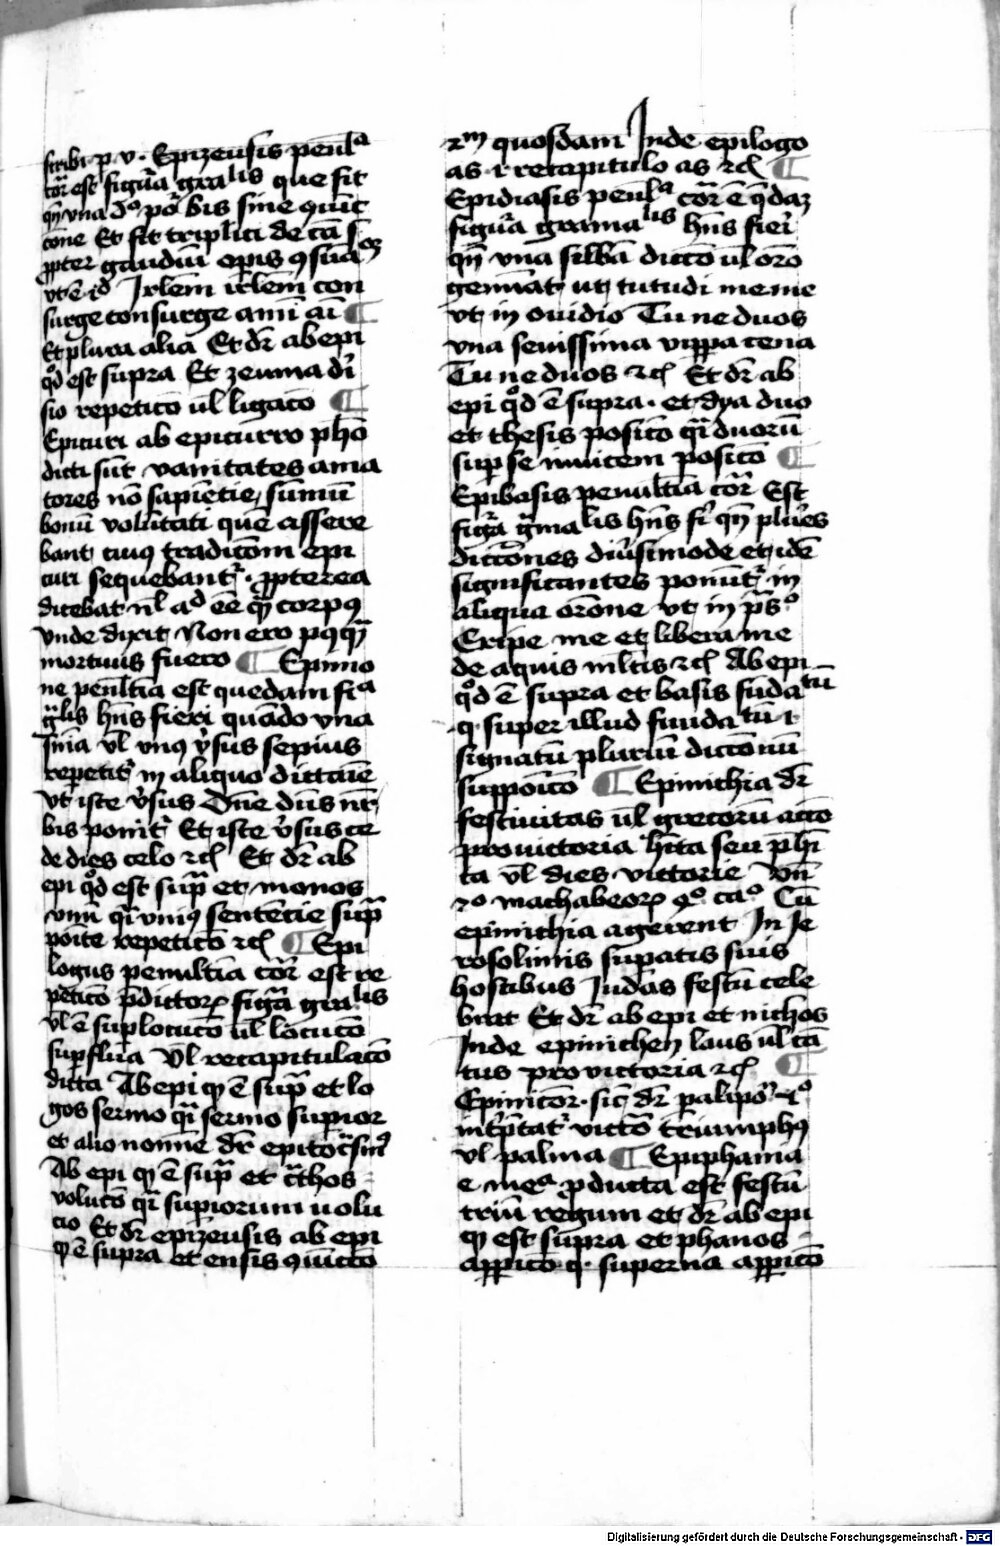 scribi p v. Epizeusis penlᵃ
cōr est figūa gͣalis que fit
qn̄ vna dᵒ pōr bis sine 9iūc
cōne Et fit triplici de cā
ꝓpter gaudiū opis 9suā
vt ē id Irlem irlem con
surge consurge am̄ aī ¶
Et plura alia Et dr̄ ab epi
qͦd est supra Et zeuma di
sio repetico ul ligaco ¶
Epicuri ab epicurro pho
dicti sūt vanitates ama
tores nō sapiētie sūmū
bonū voluntati que assere
bant cuiꝰ tradicōm epi
curi sequebantr̄ ꝓpterea
dicebat nl ad eē qͣ corpꝰ
vnde dixit Non ero pꝰqͣ
mortuus fuero ¶ Epimo
ne penltīa est quedam fiᵃ
gͣlis hn̄s fieri quādo vna
sn̄ia vl vnꝰ v̄sus sepius
repetitr̄ in aliquo dictaīe
vt iste v̄sus Dn̄e dn̄s nr̄
bis ponitr̄ Et iste v̄sus ce
de dies celo ⁊c̄ Et dr̄ ab
epi qͦd est supͣ et monos
vnū qͣ vniꝰ sentētie supͣ
poīte repetico ⁊c̄ ¶ Epi
logus penultīa cōr est re
petico p̄dictoꝝ figͣa gͣalis
vl ē suplocuco ul locuco
supflua Vl recapitulaco
dicta Ab epi qͦ ē supͣ et lo
gos sermo qͣ sermo supior
et alio nomīe dr̄
Ab epi qͦ ē supͣ et
voluco qͣ supiorum uolu
cio Et dr̄ epizeusis ab epi
qͦ ē supra et ensis 9iūcto
⁊m quosdam Inde epilogo
as ⁊ recapitulo as ⁊c̄ ¶
Epidiasis penlᵃ cōr ē qͣdaꝫ
figūa gramalis hn̄s fieri
qn̄ vna silbā dicco ul oro
gemīat ut tutudi meme
vt in ouidio Tu ne duos
vna seuissima vippa cena
Tu ne duos ⁊c̄ Et dr̄ ab
epi qͦd ē supra. et dya duo
et thesis posico qͣ duorū
sup se inuicem posico ¶
Epibasis penultīa cōr Est
figͣ gͣmalis hn̄s fi qn̄ plūes
dicciones diūsimode et idē
significantes ponūtr̄ in
aliqua orōne vt in p̄sᵒ
Eripe me et libera me
de aquis mltis ⁊c̄ Ab epi
qͦd ē supra et basis fūdatū
q. super illud fundatū ⁊
signatū plurium diccōnū
supposico ¶ Epinichia dr̄
festiuitas ul grecorū acco
pro victoria hīta seu p̄hi
ta vl dies victorie Vn̄
⁊ᵒ machabeoꝝ qᵒ caᵒ Cū
epinichia agerent In Ie
rosolimis supatis suis
hostibus Iudas festū cele
brat Et dr̄ ab epi et nichos
Inde epinichen laus ul cā
tus pro victoria ⁊c̄ ¶
Epinicōr. sic̄ dr̄ palipoᵒ ⁊ ᵒ
int̄p̄tatr̄ victō triumphꝰ
vl palma ¶ Epiphania
e meᵃ ꝓducta est festū
triū regum et dr̄ ab epi
qͦ est supra et phanos
appico q. superna appico
Digitalisierung gefördert durch die Deutsche Forschungsgemeinschaft - DFG